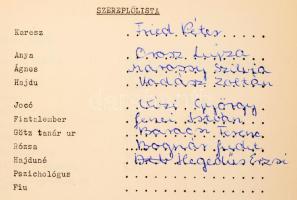 SZEREPLŐLISTA
Keresz . . . Fried Péter
Anya . . . Orosz Lujza
Ágnes . . . Sárossy Szilvia
Hajdu . . . Vadász Zoltán
Jocó . . . György
Fiatalember . . . István
Götz tanár ur . . . Baracsi Ferenc
Rózsa . . . Bognár
Hajduné . . . Hegedüs Erzsi
Pszichológus . . .
Fiu . . .